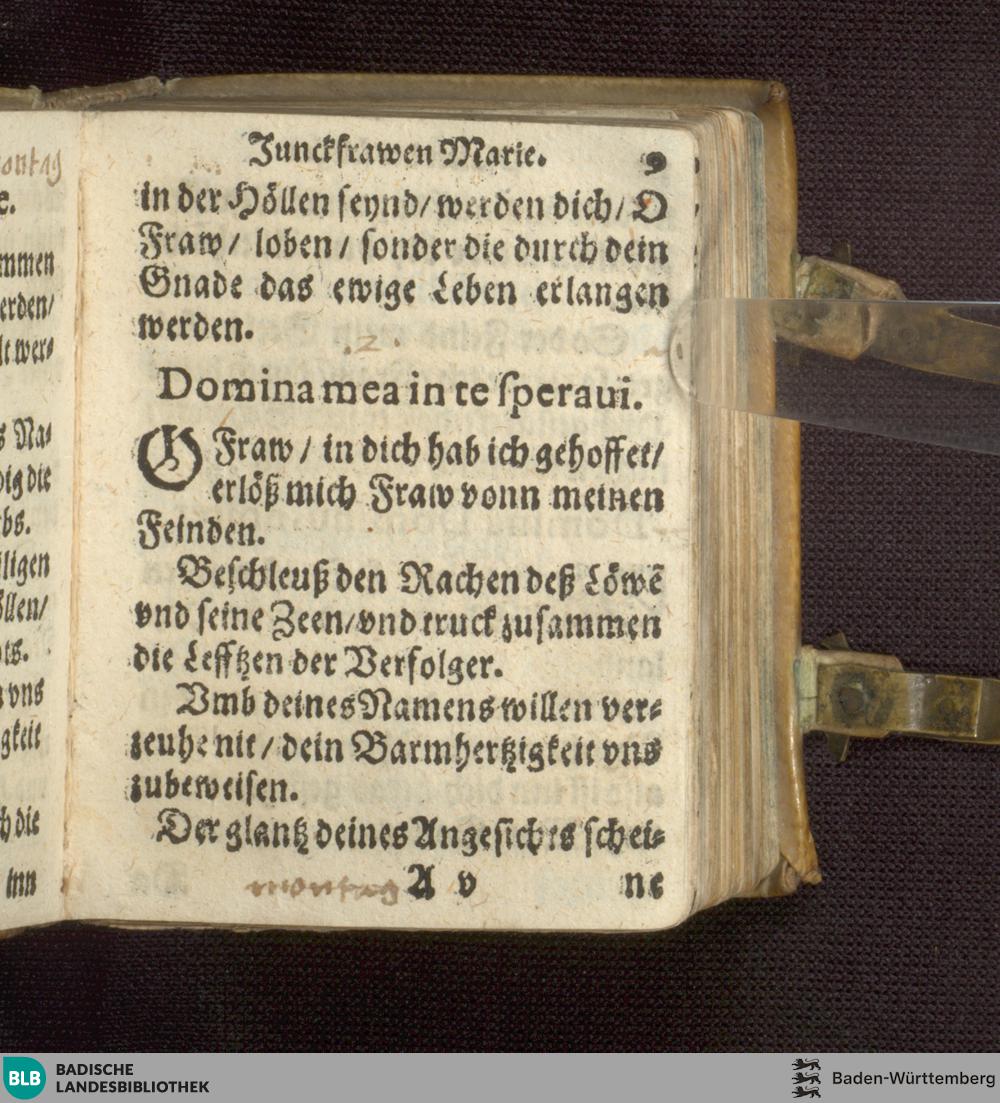 ontag
e.
mmen
erden/
lt wer⸗
s Na⸗
dig die
bs.
iligen
öllen/
ts.
vns
gkeit
h die
inn
Junckfrawen Marie.
9
in der Höllen seynd/ werden dich/ O
Fraw/ loben/ sonder die durch dein
Gnade das ewige Leben erlangen
werden.
.2.
Domina mea in te speraui.
O Fraw/ in dich hab ich gehoffet/
erlöß mich Fraw vonn meinen
Feinden.
Beschleuß den Rachen deß Löwẽ
vnd seine Zeen/ vnd truck zusammen
die Lefftzen der Verfolger.
Vmb deines Namens willen ver⸗
zeuhe nit/ dein Barmhertzigkeit vns
zubeweisen.
Der glantz deines Angesichts schei⸗
montag
A v
ne
BLB
BADISCHE
LANDESBIBLIOTHEK
Baden-Württemberg